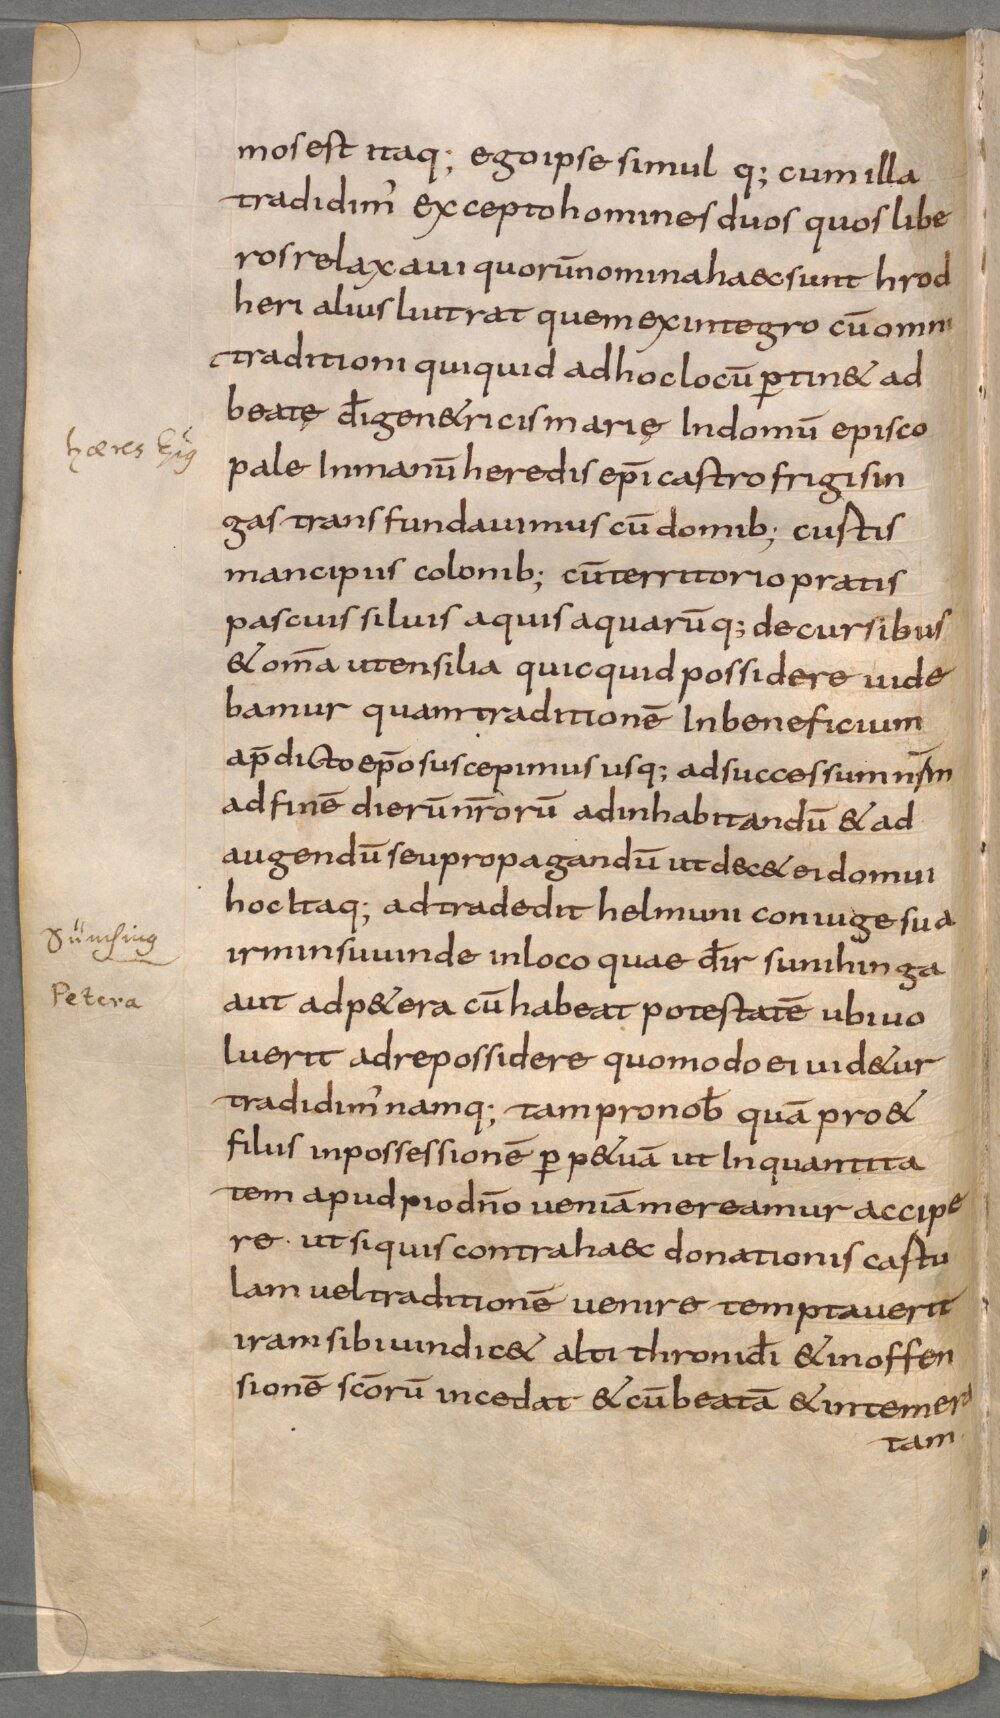 mos est itaq; ego ipse simul q; cum illa
tradidim᾽ excepto homines duos quos libe
ros relaxaui quorū nomina haec sunt hrod
heri alius liutrat quem ex integro cū omni
traditioni quiquid ad hoc locū ꝑtin& ad
beatę dī gen&ricis marię In domū episco
pale In manū heredis ep̄i castro frigisin
gas transfundauimus cū domib; custis
mancipiis colonib; cū territorio pratis
pascuis siluis aquis aquarūq; decursibus
& om̄a utensilia quicquid possidere uide
bamur quam traditionē In beneficium
a p̄dicto ep̄o suscepimus usq; ad successum nr̄m
ad finē dierū nr̄orū ad inhabitandū & ad
augendū seu propagandū ut dec& ei domui
hoc Itaq; adtradedit helmuni coniuge sua
irminsuuinde in loco quae dr̄ sunihinga
aut ad p&era cū habeat potestatē ubi uo
luerit ad repossidere quomodo ei uid&ur
tradidim᾽ namq; tam pro nob̄ quā pro &
filiis in possessionē ꝑp&uā ut In quantita
tem apud pio dn̄o ueniā mereamur accipe
re · ut si quis contra haec donationis castu
lam uel traditionē uenire temptauerit
iram sibi uindic& alti throni dī & in offen
sionē sc̄orū incedat & cū beatā & intemera
tam
hæres
Sünching
Petera